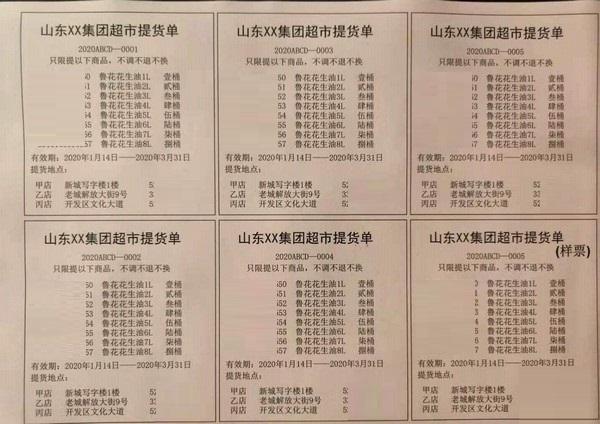 山东XX集团超市提货单
2020ABCD—0001
只限提以下商品，不调不退不换
50 鲁花花生油1L 壹桶
51 鲁花花生油2L 贰桶
52 鲁花花生油3L 叁桶
53 鲁花花生油4L 肆桶
54 鲁花花生油5L 伍桶
55 鲁花花生油6L 陆桶
56 鲁花花生油7L 柒桶
57 鲁花花生油8L 捌桶
有效期：2020年1月14日——2020年3月31日
提货地点：
甲店 新城写字楼1楼 5
乙店 老城解放大街9号 3
丙店 开发区文化大道 5
山东XX集团超市提货单
2020ABCD—0003
只限提以下商品，不调不退不换
50 鲁花花生油1L 壹桶
51 鲁花花生油2L 贰桶
52 鲁花花生油3L 叁桶
53 鲁花花生油4L 肆桶
54 鲁花花生油5L 伍桶
55 鲁花花生油6L 陆桶
56 鲁花花生油7L 柒桶
57 鲁花花生油8L 捌桶
有效期：2020年1月14日——2020年3月31日
提货地点：
甲店 新城写字楼1楼 52
乙店 老城解放大街9号 33
丙店 开发区文化大道 52
山东XX集团超市提货单
2020ABCD—0005
只限提以下商品，不调不退不换
50 鲁花花生油1L 壹桶
51 鲁花花生油2L 贰桶
52 鲁花花生油3L 叁桶
53 鲁花花生油4L 肆桶
54 鲁花花生油5L 伍桶
55 鲁花花生油6L 陆桶
56 鲁花花生油7L 柒桶
57 鲁花花生油8L 捌桶
有效期：2020年1月14日——2020年3月31日
提货地点：
甲店 新城写字楼1楼 52
乙店 老城解放大街9号 33
丙店 开发区文化大道 52
山东XX集团超市提货单
2020ABCD—0002
只限提以下商品，不调不退不换
50 鲁花花生油1L 壹桶
51 鲁花花生油2L 贰桶
52 鲁花花生油3L 叁桶
53 鲁花花生油4L 肆桶
54 鲁花花生油5L 伍桶
55 鲁花花生油6L 陆桶
56 鲁花花生油7L 柒桶
57 鲁花花生油8L 捌桶
有效期：2020年1月14日——2020年3月31日
提货地点：
甲店 新城写字楼1楼 52
乙店 老城解放大街9号 33
丙店 开发区文化大道 52
山东XX集团超市提货单
2020ABCD—0004
只限提以下商品，不调不退不换
50 鲁花花生油1L 壹桶
51 鲁花花生油2L 贰桶
52 鲁花花生油3L 叁桶
53 鲁花花生油4L 肆桶
54 鲁花花生油5L 伍桶
55 鲁花花生油6L 陆桶
56 鲁花花生油7L 柒桶
57 鲁花花生油8L 捌桶
有效期：2020年1月14日——2020年3月31日
提货地点：
甲店 新城写字楼1楼 52
乙店 老城解放大街9号 33
丙店 开发区文化大道 52
山东XX集团超市提货单
(样票)
2020ABCD—0005
只限提以下商品，不调不退不换
0 鲁花花生油1L 壹桶
1 鲁花花生油2L 贰桶
2 鲁花花生油3L 叁桶
3 鲁花花生油4L 肆桶
4 鲁花花生油5L 伍桶
5 鲁花花生油6L 陆桶
6 鲁花花生油7L 柒桶
7 鲁花花生油8L 捌桶
有效期：2020年1月14日——2020年3月31日
提货地点：
甲店 新城写字楼1楼 52
乙店 老城解放大街9号 33
丙店 开发区文化大道 52